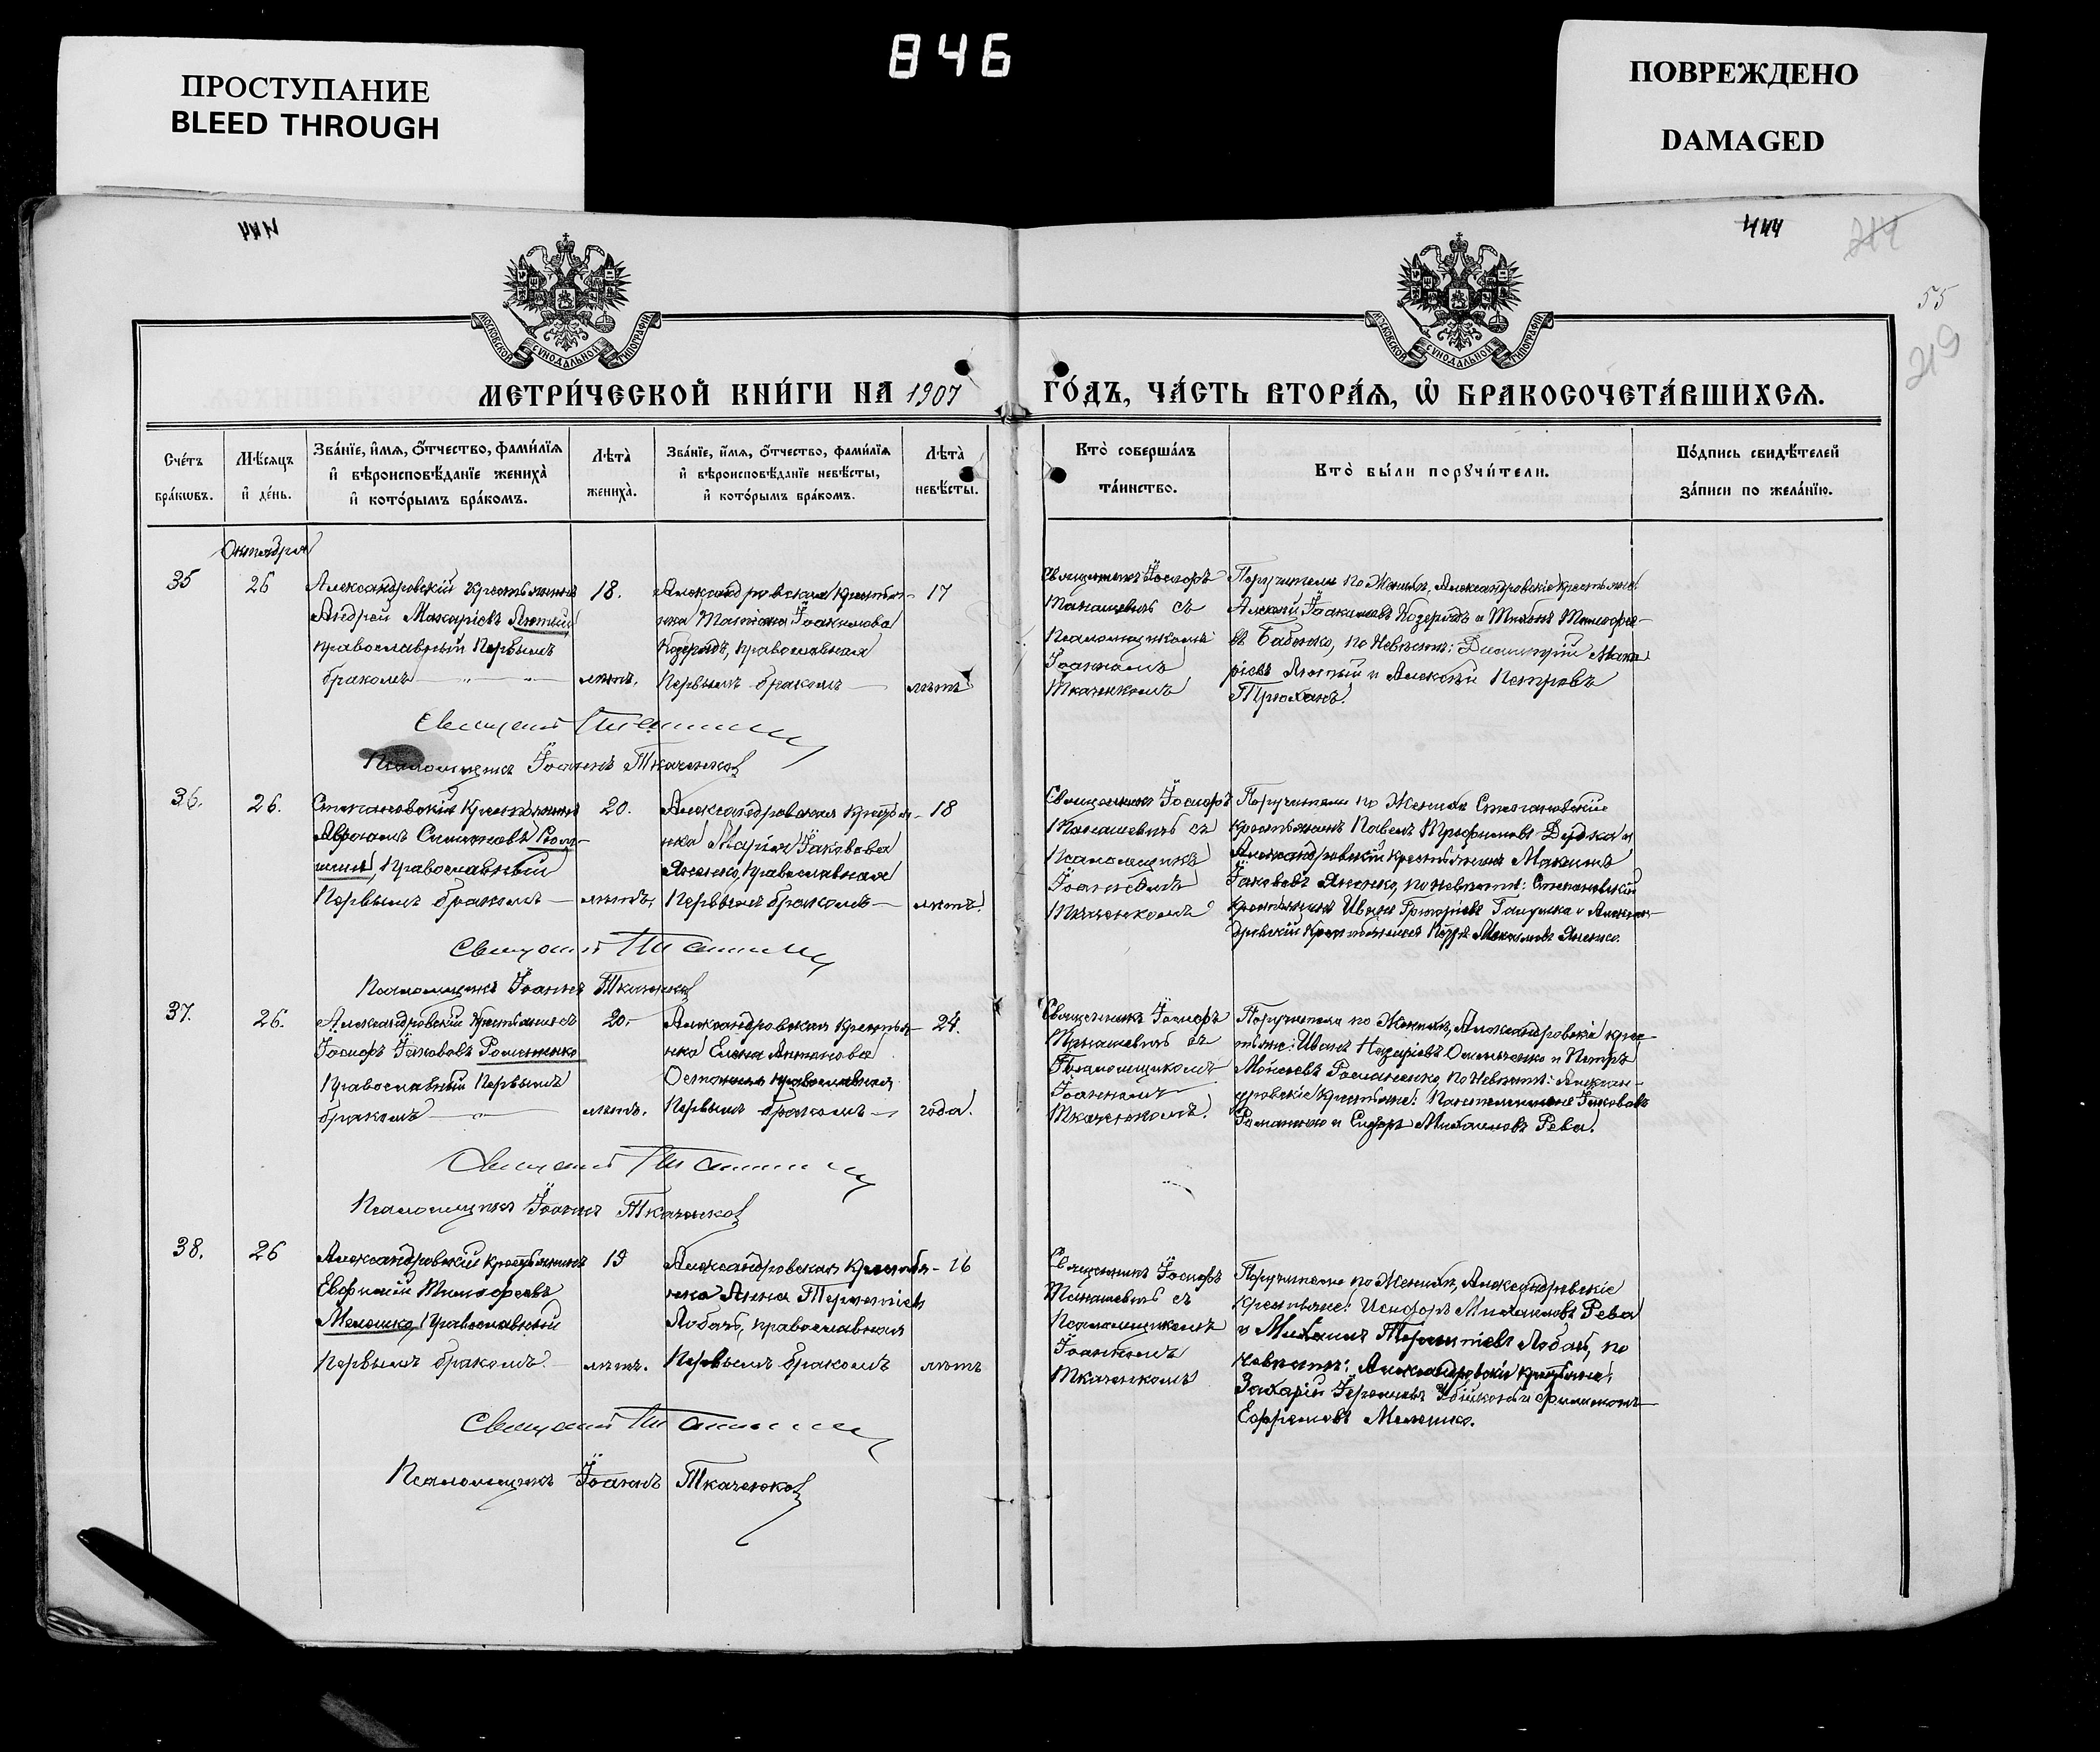 846
ПРОСТУПАНИЕ
BLEED THROUGH
ПОВРЕЖДЕНО
DAMAGED
444
444
214
55
219
МОСКОВСКОЙ СѴНОДАЛЬНОЙ ТИПОГРАФІИ
МОСКОВСКОЙ СѴНОДАЛЬНОЙ ТИПОГРАФІИ
МЕТРИ́ЧЕСКОЙ КНИ́ГИ НА 1907 ГО́ДЪ, ЧА́СТЬ ВТОРА́Ѧ, Ѽ БРАКОСОЧЕТА́ВШИХСѦ.
Сче́тъ бра́кωвъ.
Мѣ́сяцъ и де́нь.
Зва́нїе, и́мѧ, ѻ́тчество, фами́лїѧ и вѣроисповѣ́данїе жениха̀ и кото́рымъ бра́комъ.
Лѣта̀ жениха̀.
Зва́нїе, и́мѧ, ѻ́тчество, фами́лїѧ и вѣроисповѣ́данїе невѣ́сты, и кото́рымъ бра́комъ.
Лѣта̀ невѣ́сты.
Кто̀ соверша́лъ та́инство.
Кто̀ бы́ли порꙋчи́тели.
По́дпись свидѣ́телей за́писи по жела́нїю.
Октября
35
26
Александровскій крестьянинъ
Андрей Макаріевъ Лютый
православный первымъ
бракомъ
18.
лѣтъ.
Александровская крестьян-
ка Татіана Іоакимова
Козерядъ, православная
первымъ бракомъ
17
лѣтъ
Священникъ Іосифъ
съ
Псаломщикомъ
Іоанномъ
Ткаченкомъ
Поручители по женихѣ, Александровскіе крестьяне:
Алексѣй Іоакимовъ Козерядъ и Тихонъ Тимофѣе-
въ Бабенко, по невѣстѣ: Димитрій Мака-
ріевъ Лютый и Алексѣй Петровъ
Трюханъ.
Псаломщикъ Іоаннъ Ткаченко
36.
26.
Степановскій крестьянинъ
Авраамъ Симоновъ
православный
первымъ бракомъ
20.
лѣтъ.
Александровская крестьян-
ка Марія Іаковова
Яненко, православная
первымъ бракомъ
18
лѣтъ.
Священникъ Іосифъ
съ
Псаломщик
Іоанномъ
Ткаченкомъ
Поручители по женихѣ Степановскіе
крестьянинъ Павелъ Трофимовъ Дудка и
Александровскій крестьянинъ Максимъ
Іаковлевъ Яненко, по невѣстѣ: Степановскій
крестьянинъ Иванъ Григоріевъ и Алексан-
дровскій крестьянинъ Яненко.
Псаломщикъ Іоаннъ Ткаченко
37.
26.
Александровскій крестьянинъ
Іосифъ Іаковлевъ Романенко
православный первымъ
бракомъ
20.
лѣтъ.
Александровская крестьян-
ка Елена Антонова
православная
первымъ бракомъ
24.
года.
Священникъ Іосифъ
съ
Псаломщикомъ
Іоанномъ
Ткаченкомъ.
Поручители по женихѣ, Александровскіе крес-
тьяне: Иванъ Назаріевъ Омельченко и Петръ
Моисеевъ Романенко, по невѣстѣ: Алексан-
дровскіе крестьяне: Пантелеимонъ Іаковлевъ
Романенко и Сидоръ Михаиловъ Рева.
Псаломщикъ Іоаннъ Ткаченко
38.
26
Александровскій крестьянинъ
Евфимій Тимофеевъ
Мелешко, православный
первымъ бракомъ
19
лѣтъ.
Александровская крестьян-
ка Анна Терентіев
Лобачъ, православная
первымъ бракомъ
16
лѣтъ
Священникъ Іосифъ
съ
Псаломщикомъ
Іоанномъ
Ткаченкомъ
Поручители по женихѣ, Александровскіе
крестьяне: Исидоръ Михаиловъ Рева
и Михаилъ Терентіевъ Лобачъ, по
невѣстѣ: Александровскіе крестьяне:
Захарій и Филимонъ
Ефремовъ Мелешко.
Псаломщикъ Іоаннъ Ткаченко